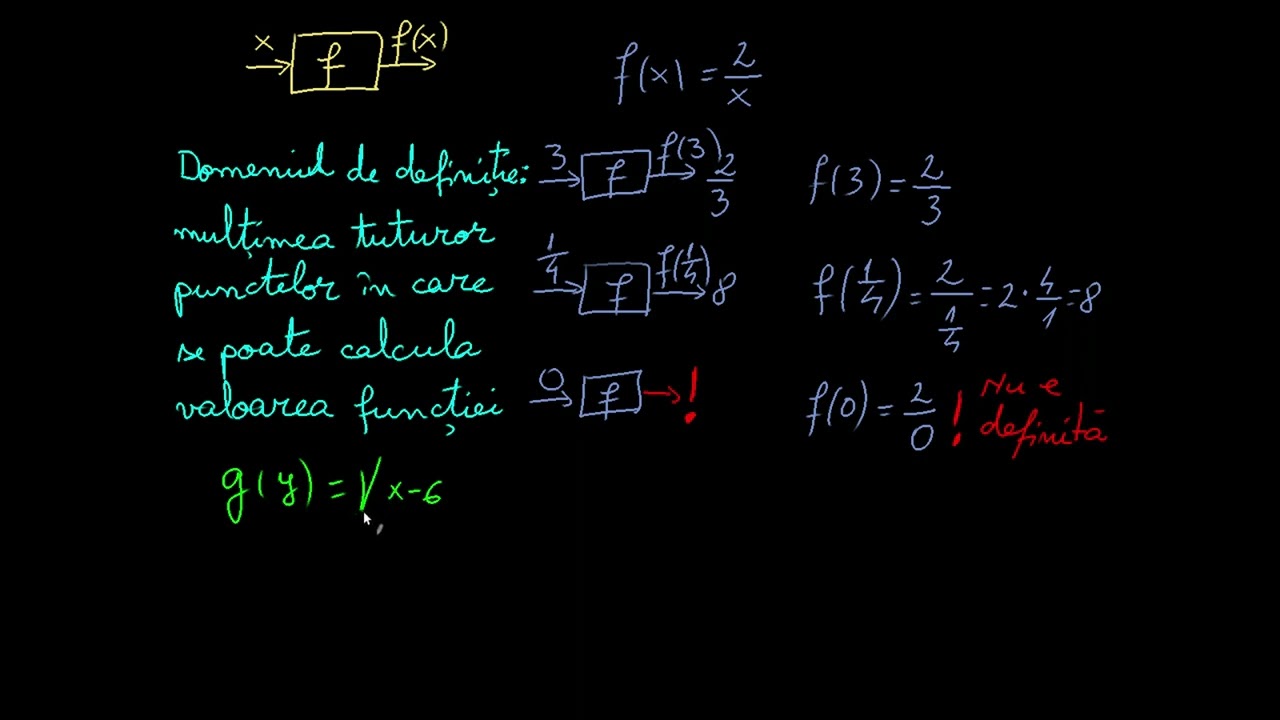 x f f(x)
f(x) = 2/x
Domeniul de definiție:
mulțimea tuturor
punctelor în care
se poate calcula
valoarea funcției
3 f f(3) 2/3
f(3) = 2/3
1/4 f f(1/4) 8
f(1/4) = 2/(1/4) = 2·4/1 = 8
0 f !
f(0) = 2/0 ! Nu e
definită
g(y) = √ x-6